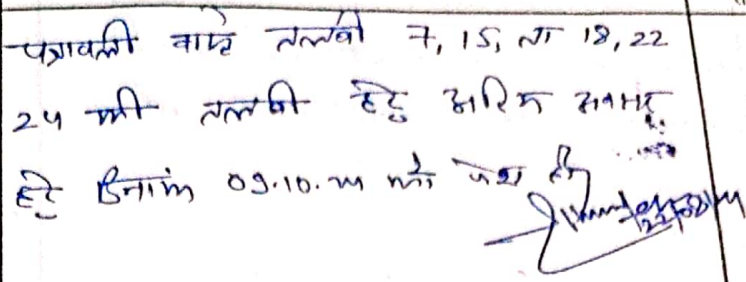 पत्रावली वास्ते तलबी 7, 15, ता 18, 22
24 की तलबी हेतु
हेतु दिनांक 09.10. को पेश हो